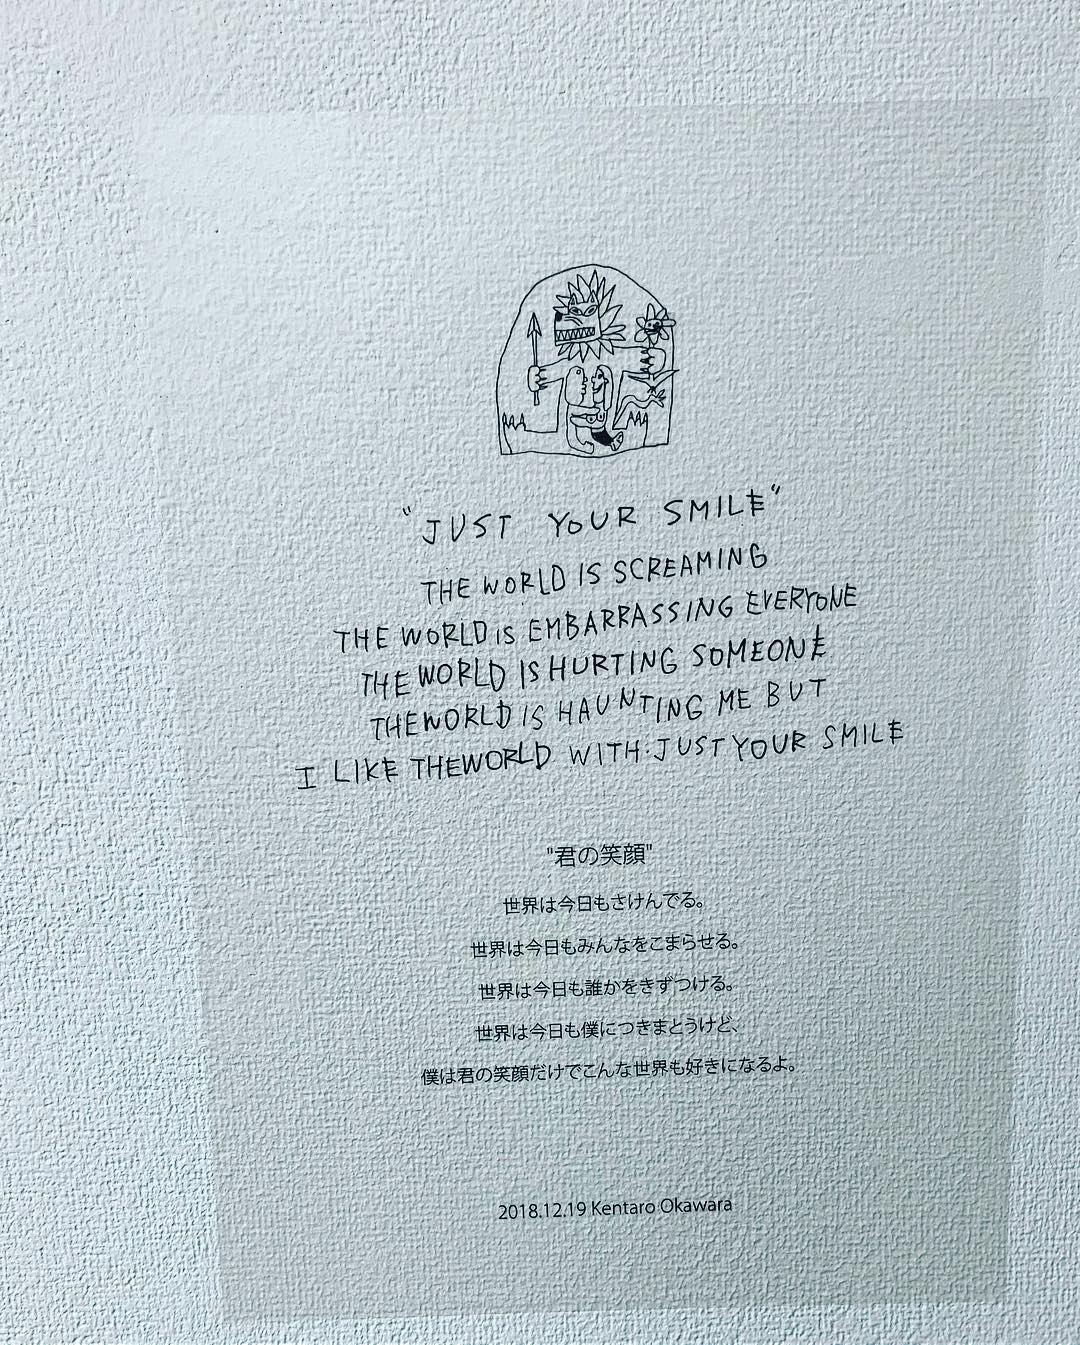 "JUST YOUR SMILE"
THE WORLD IS SCREAMING
THE WORLD IS EMBARRASSING EVERYONE
THE WORLD IS HURTING SOMEONE
THE WORLD IS HAUNTING ME BUT
I LIKE THE WORLD WITH JUST YOUR SMILE
"君の笑顔"
世界は今日もさけんでる。
世界は今日もみんなをこまらせる。
世界は今日も誰かをきずつける。
世界は今日も僕につきまとうけど、
僕は君の笑顔だけでこんな世界も好きになるよ。
2018.12.19 Kentaro Okawara